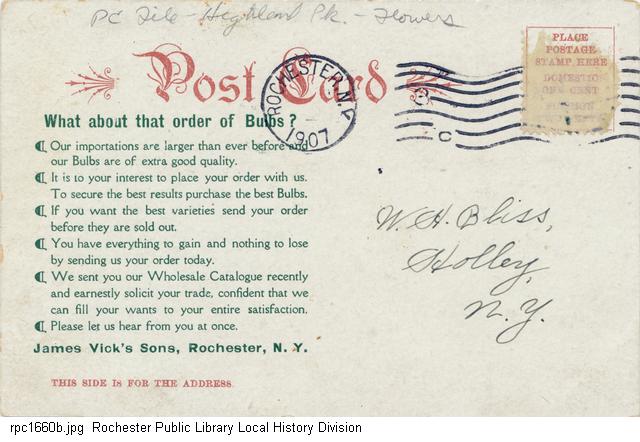 PC File - Highland Pk. - Flowers
Post Card
ROCHESTER, N.Y.
1907
C
PLACE
POSTAGE
STAMP HERE
DOMESTIC
ONE CENT
What about that order of Bulbs?
¶ Our importations are larger than ever before and
our Bulbs are of extra good quality.
¶ It is to your interest to place your order with us.
To secure the best results purchase the best Bulbs.
¶ If you want the best varieties send your order
before they are sold out.
¶ You have everything to gain and nothing to lose
by sending us your order today.
¶ We sent you our Wholesale Catalogue recently
and earnestly solicit your trade, confident that we
can fill your wants to your entire satisfaction.
¶ Please let us hear from you at once.
James Vick's Sons, Rochester, N. Y.
THIS SIDE IS FOR THE ADDRESS.
W. H. Bliss,
Holley,
N. Y.
rpc1660b.jpg Rochester Public Library Local History Division